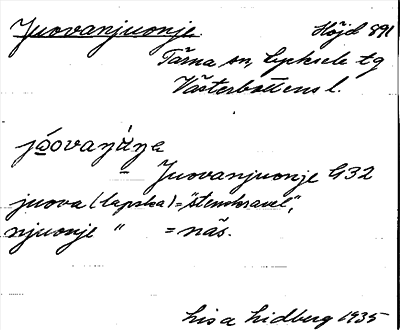 Juovanjuonje Höjd 891
Tärna sn, Lycksele tg
Västerbottens l.
jóovaŋ̀ŋa
= Juovanjuonje G32
juova (lapska) = "stenskravel",
njuonje " = näs.
Lisa Lidberg 1935